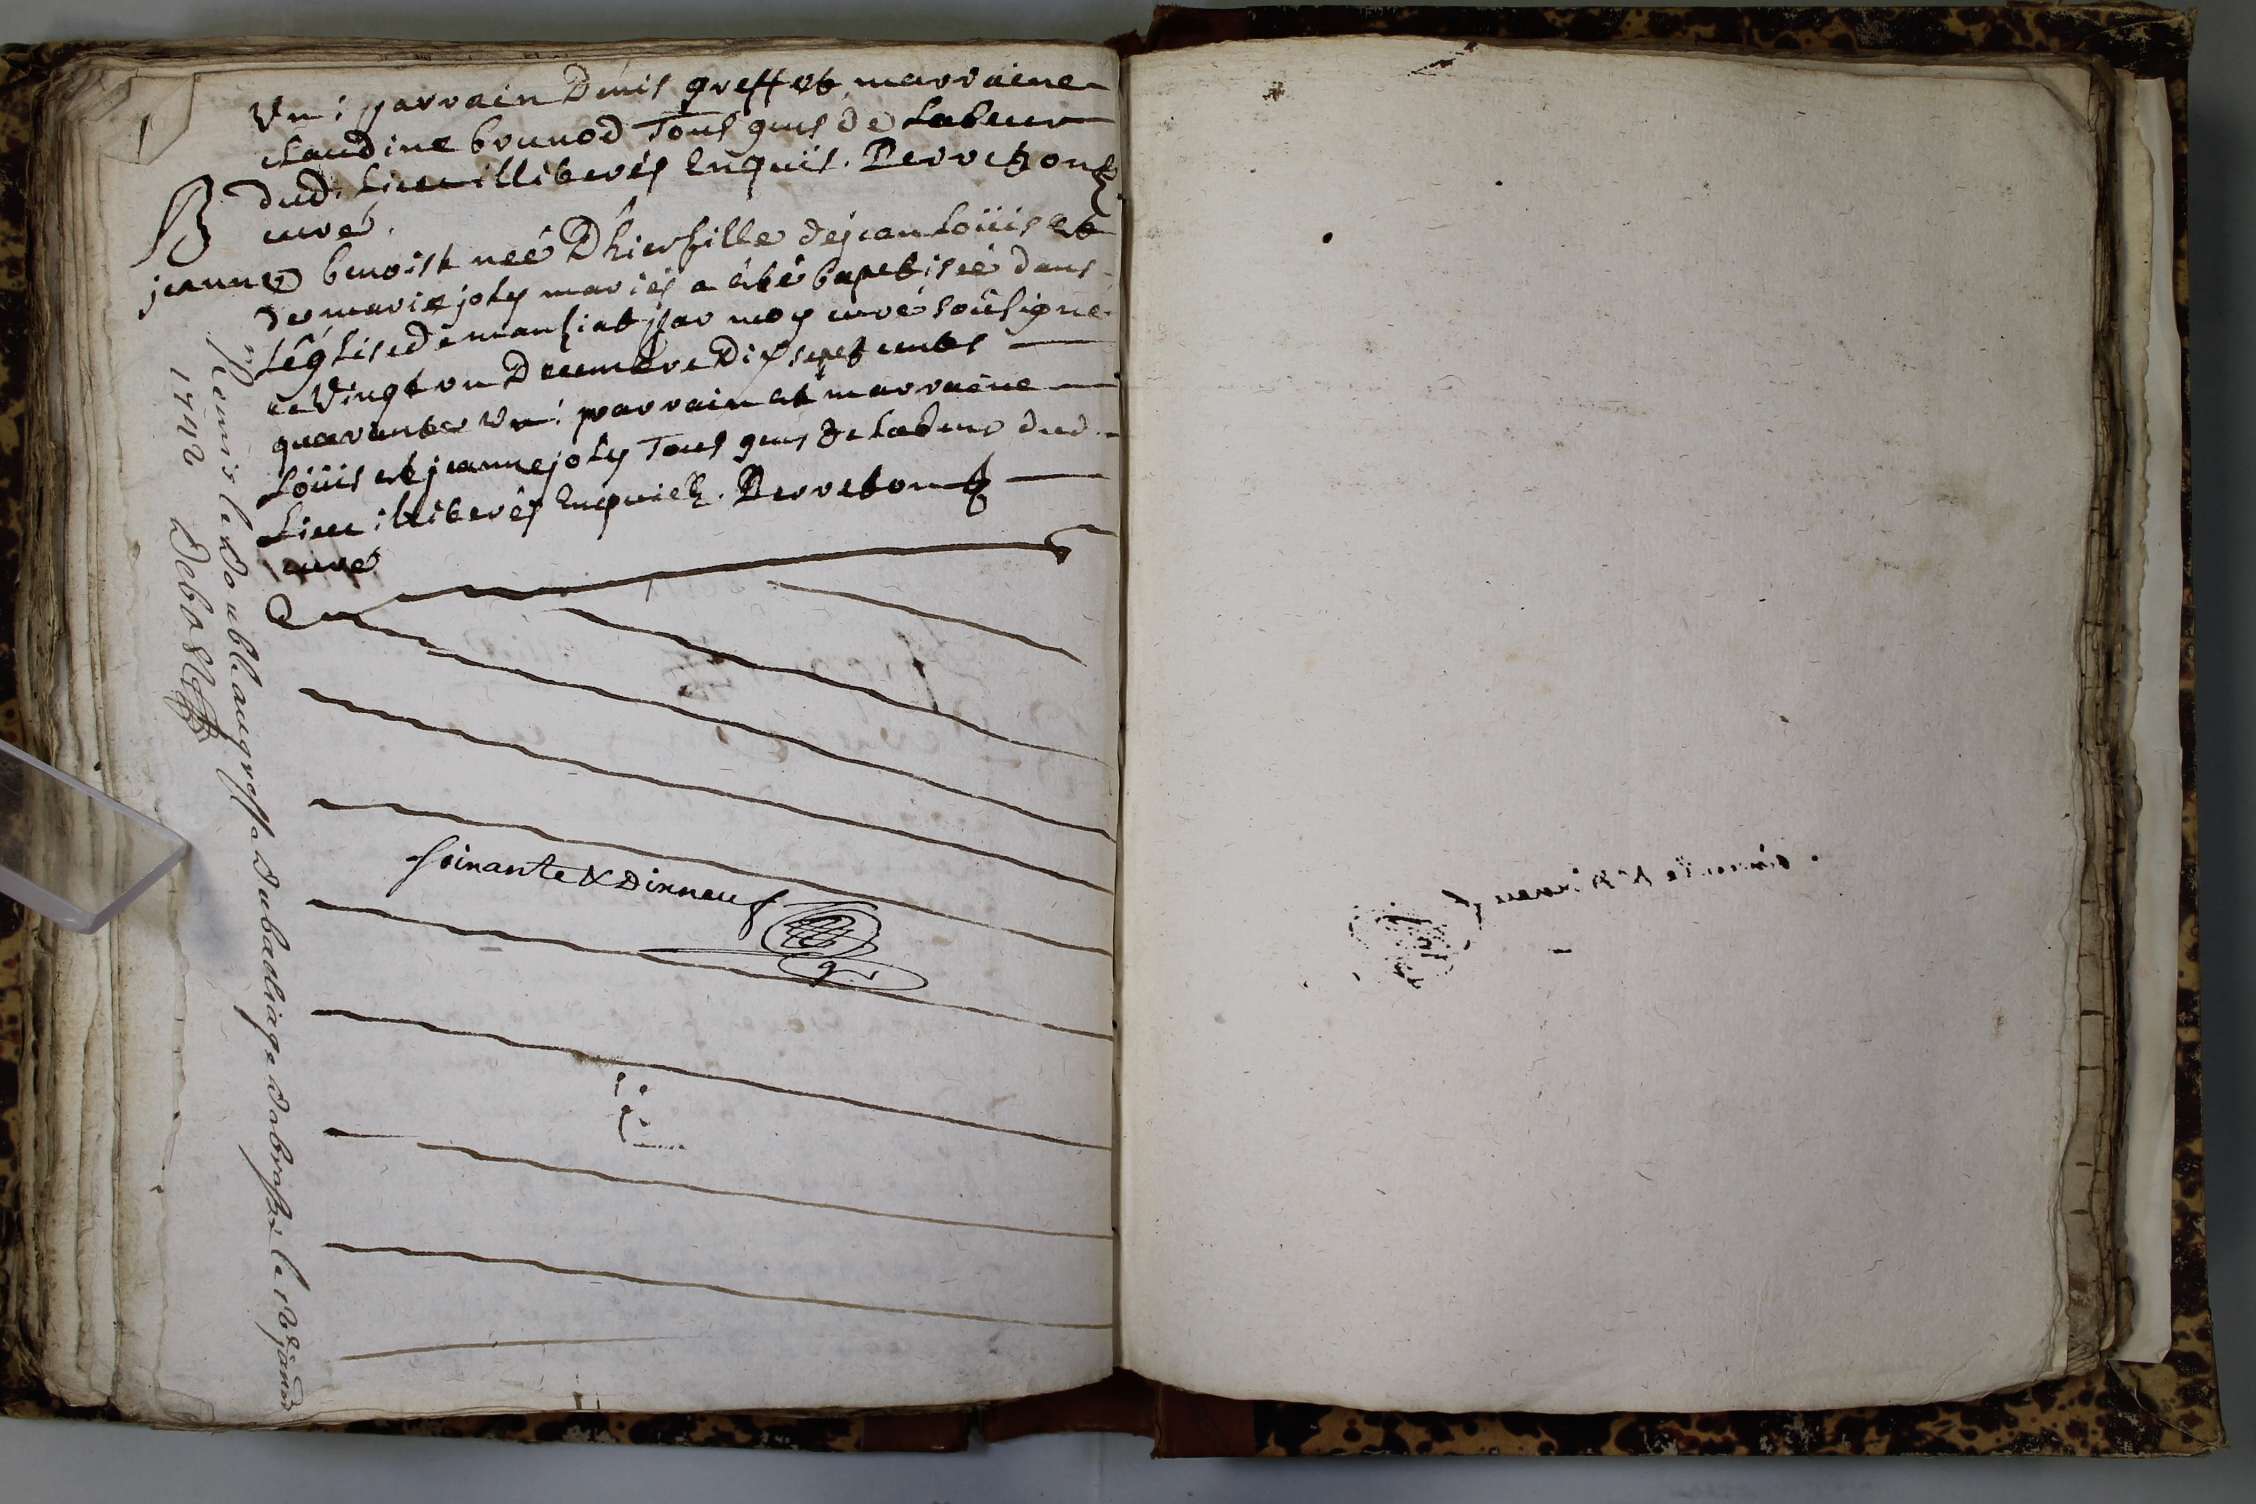 Un ; parrain Denis greffet marraine
claudine brunod Tous gens de Labeur
dud. Lieu illiterés Enquis. Perreton
curé.
B
jeanne benoist neé D'hier fille de jean Loüis et
de marie joly mariés a été baptisée dans
L'église de manziat par moy curé soûsigné
ce Vingt un Decembre Dix sept cents
quarante Un ; parrain et marraine
Loüis et jeanne joly Tous gens de Labeur dud.
Lieu illiterés Enquich. Perreton
curé
Remis le Double au greffe Du bailliage
1742
soixante & Dixneuf